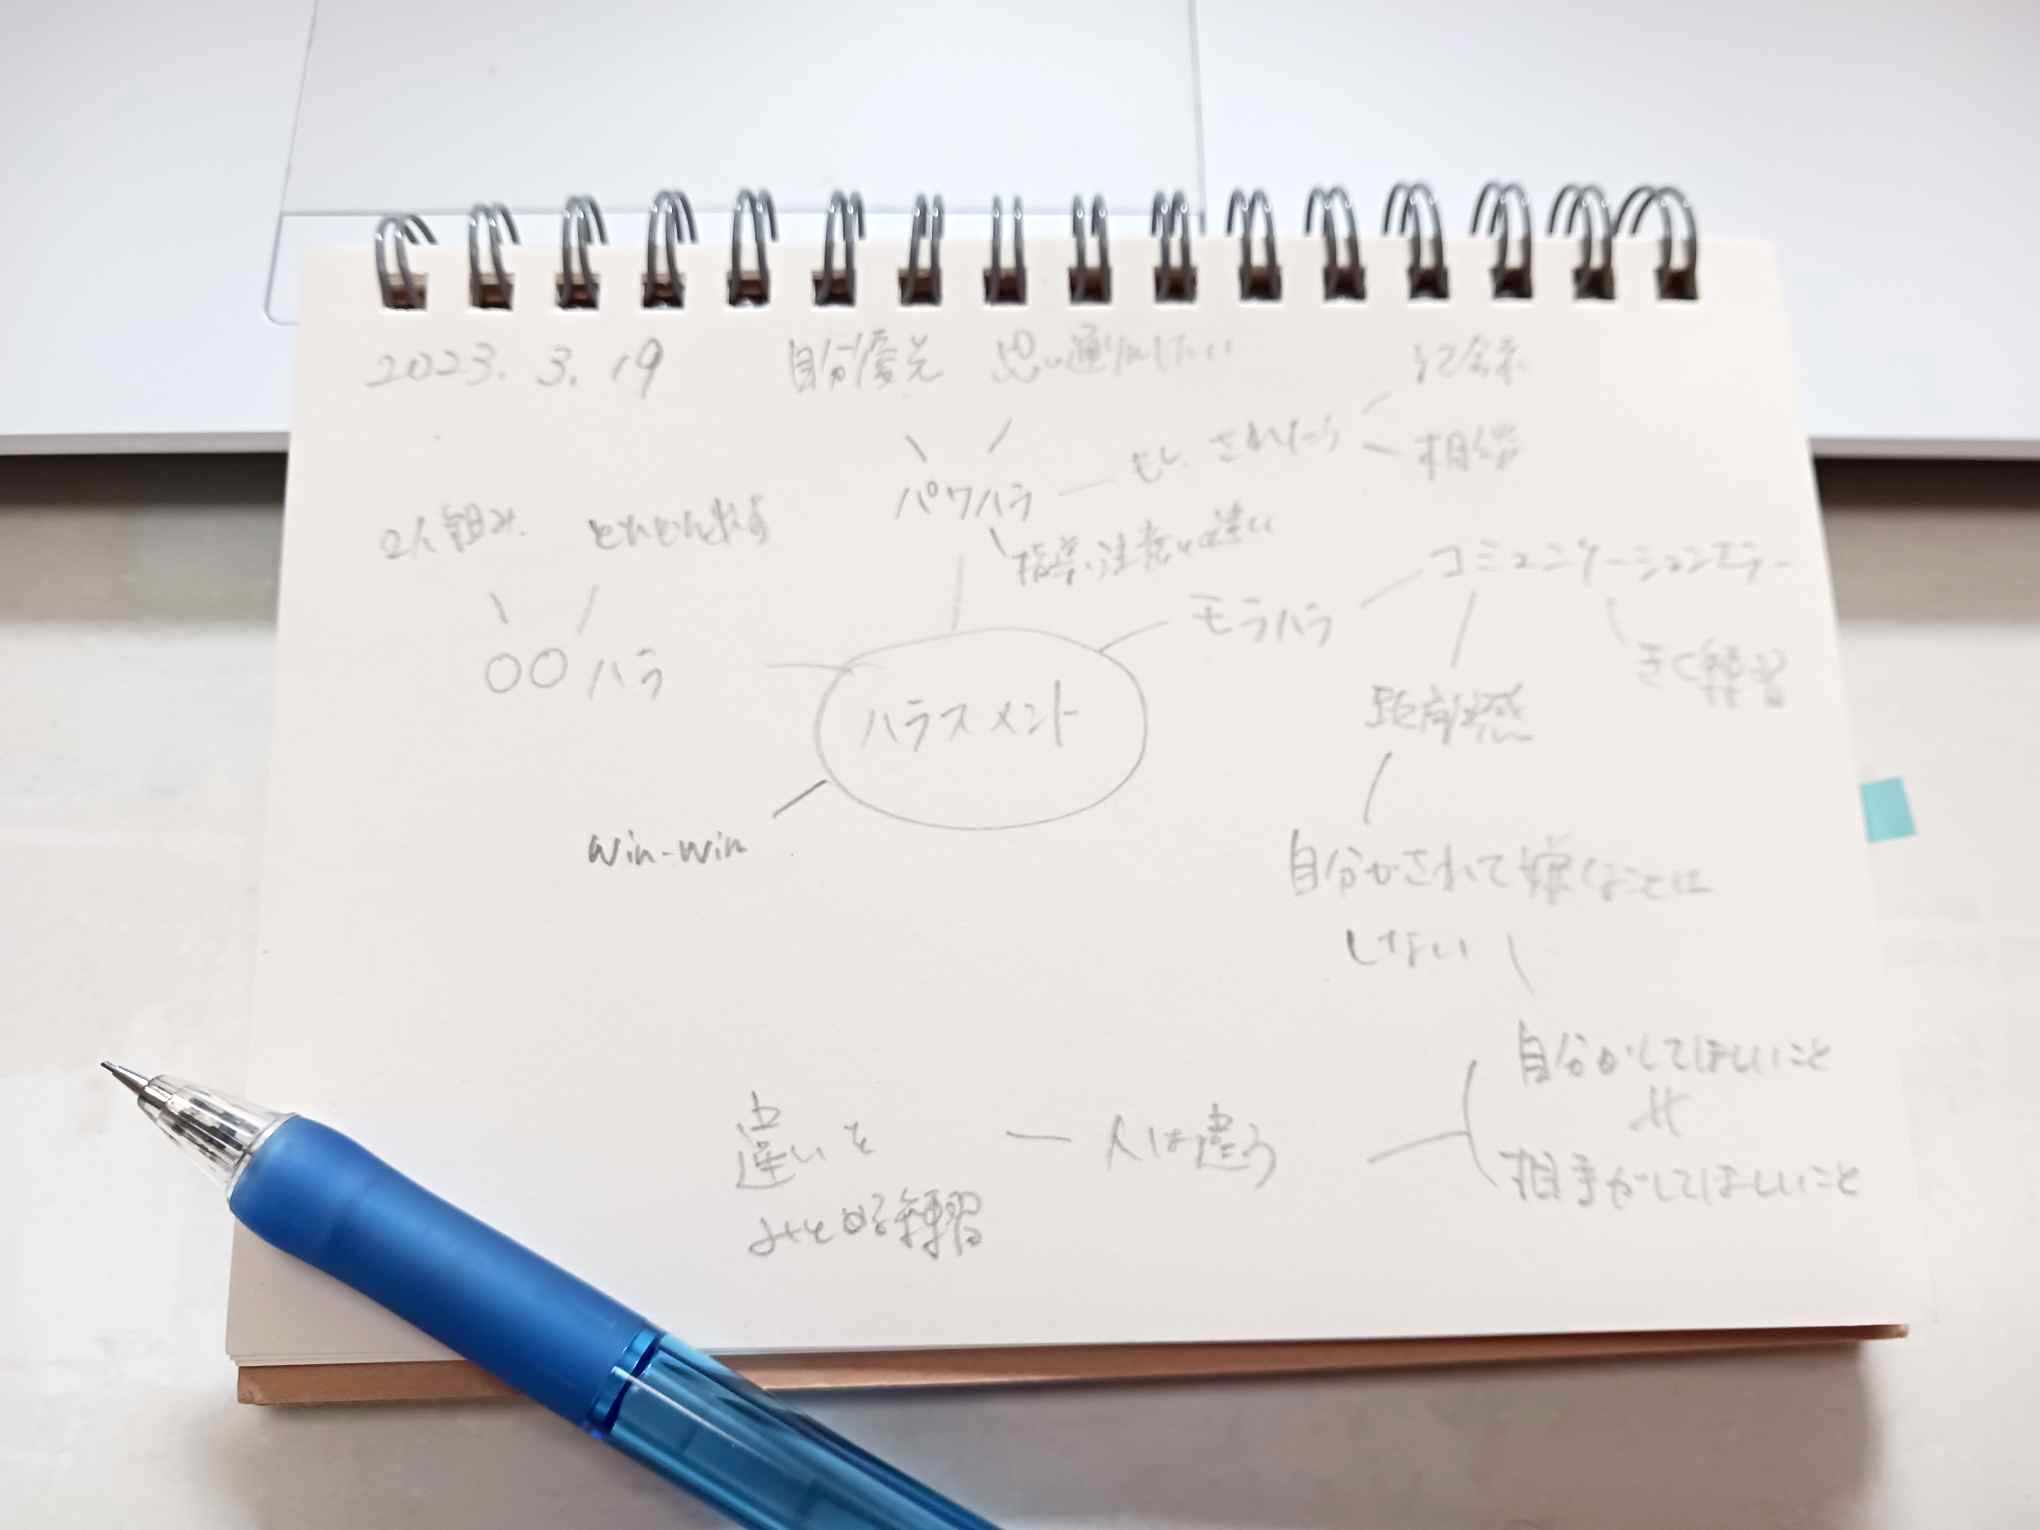 2023. 3. 19
自分優先
思い通りにしたい
記録
もし されたら
相談
パワハラ
指導・注意との違い
2人組み
どんどん増える
〇〇ハラ
モラハラ
コミュニケーションエラー
きく練習
距離感
ハラスメント
win-win
自分がされて嫌なことは
しない
自分がしてほしいこと
相手がしてほしいこと
人は違う
違いを
みとめる練習